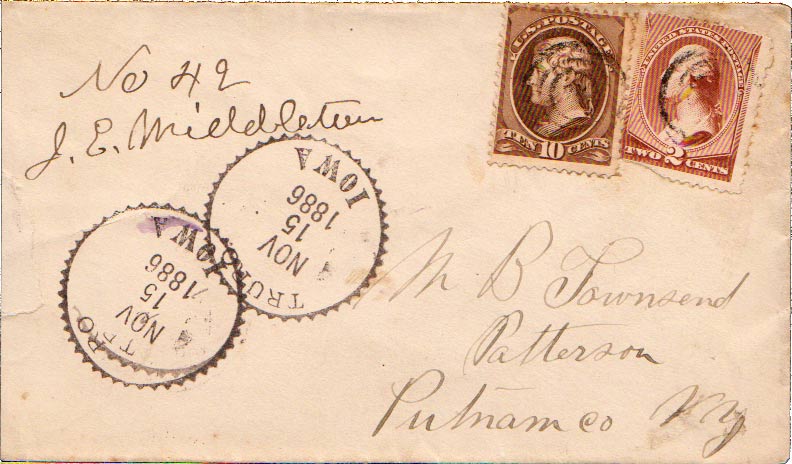 No 42
J. E. Middleton
U.S. POSTAGE
TEN 10 CENTS
UNITED STATES POSTAGE
TWO 2 CENTS
IOWA
1886
15
NOV
TRURO
IOWA
1886
15
NOV
M B Townsend
Patterson
Putnam co NY